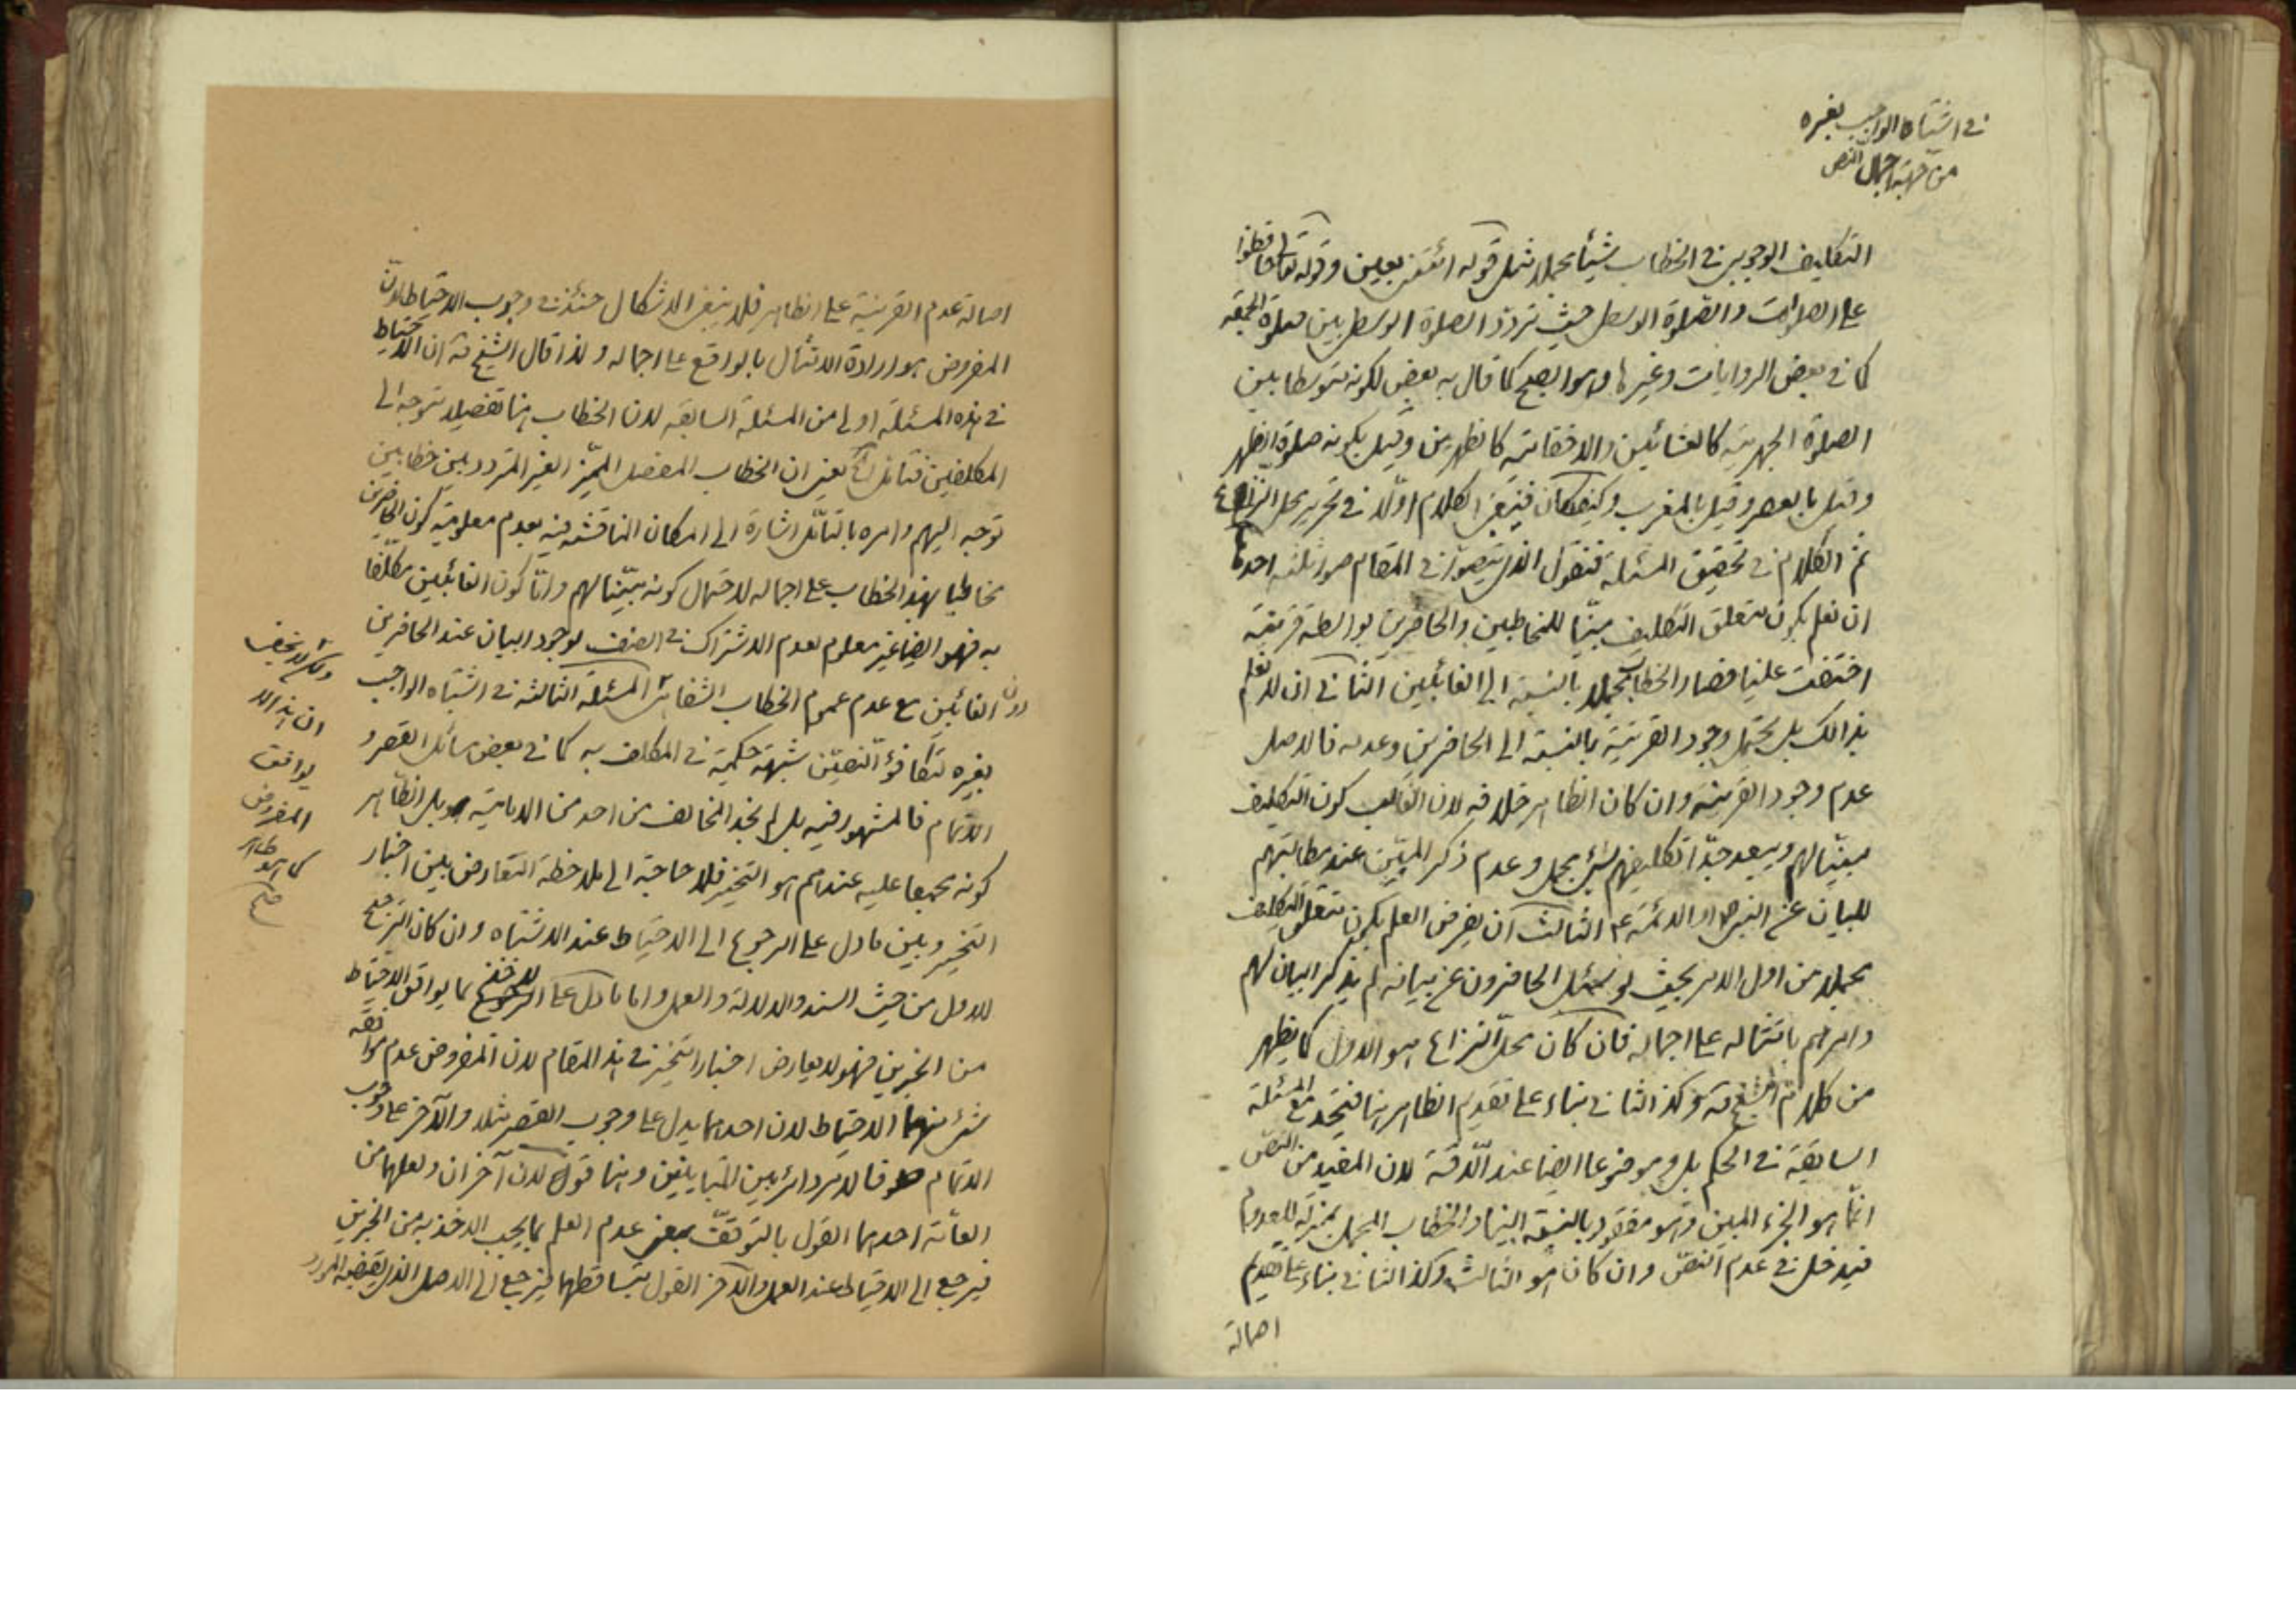 في اشتباه الواجب بغيره
من جهة اجمال النص
التكليف الوجوبي في الخطاب شيئا مجملا مثل قوله ائتني بعين وقوله تعالى حافظوا
على الصلوات والصلوة الوسطى حيث تردد الصلوة الوسطى بين صلوة الجمعة
كما في بعض الروايات وغيرها وهو الصبح كما قال به بعض لكونه متوسطا بين
الصلوة الجهرية كالعشائين والاخفاتية كالظهرين وقيل بكونه صلوة الظهر
وقيل بالعصر وقيل بالمغرب وكيفكان فيقع الكلام اولا في تحرير محل النزاع
ثم الكلام في تحقيق المسئلة فنقول الذي يتصور في المقام صور ثلثة احدها
ان نعلم بكون متعلق التكليف مبينا للمخاطبين والحاضرين بواسطة قرينة
اختفت علينا فصار الخطاب مجملا بالنسبة الى الغائبين الثاني ان لا نعلم
بذالك بل يحتمل وجود القرينة بالنسبة الى الحاضرين وعدمه فالاصل
عدم وجود القرينة وان كان الظاهر خلافه لان الغالب كون التكليف
مبينا لهم ويبعد جدا تكليفهم بشئ مجمل وعدم ذكر المبين عند مطالبتهم
للبيان عن النبي ص او الائمة ع الثالث ان يفرض العلم بكون متعلق التكليف
مجملا من اول الامر بحيث لو سئل الحاضرون عن بيانه لم يذكر البيان لهم
وامرهم بامتثاله على اجماله فان كان محل النزاع هو الاول كما يظهر
من كلام الشيخ وكذا الثاني بناء على تقديم الظاهر هنا فيتحد مع المسئلة
السابقة في الحكم بل وموضوعا ايضا عند الدقة لان المفيد من النص
انما هو الجزء المبين وهو مفقود بالنسبة الينا والخطاب المجمل بمنزلة المعدوم
فيدخل في عدم النص وان كان هو الثالث وكذا الثاني بناء على تقديم
اصالة
اصالة عدم القرينة على الظاهر فلا ينبغي الاشكال حينئذ في وجوب الاحتياط لان
المفروض هو ارادة الامتثال بالواقع على اجماله ولذا قال الشيخ ان الاحتياط
في هذه المسئلة اولى من المسئلة السابقة لان الخطاب هنا تفصيلا متوجه الى
المكلفين فتأمل يعني ان الخطاب المفصل المميز الغير المتردد بين خطابين
توجه اليهم وامره بالتأمل اشارة الى امكان المناقشة فيه بعدم معلومية كون الحاضرين
مخاطبا بهذا الخطاب على اجماله لاحتمال كونه مبينا لهم واما كون الغائبين مكلفا
به فهو ايضا غير معلوم لعدم الاشتراك في الصنف لوجود البيان عند الحاضرين
دون الغائبين مع عدم عموم الخطاب الشفاهي المسئلة الثالثة في اشتباه الواجب
بغيره لتكافؤ النصين شبهة حكمية في المكلف به كما في بعض مسائل القصر و
الاتمام فالمشهور فيه بل لم نجد المخالف من احد من الامامية بل الظاهر
كونه مجمعا عليه عندهم هو التخيير فلا حاجة الى ملاحظة التعارض بين اخبار
التخيير وبين ما دل على الرجوع الى الاحتياط عند الاشتباه وان كان الترجيح
للاول من حيث السند والدلالة والعمل واما ما دل على الاخذ بما يوافق الاحتياط
من الخبرين فهو لا يعارض اخبار التخيير في هذا المقام لان المفروض عدم موافقة
شئ منهما الاحتياط لان احدهما يدل على وجوب القصر مثلا والآخر على وجوب
الاتمام فالامر دائر بين المتباينين وهنا قولان آخران ولعلهما من
العامة احدهما القول بالتوقف بمعنى عدم العلم بما يجب الاخذ به من الخبرين
فيرجع الى الاحتياط عند العمل والآخر القول بتساقطهما فيرجع الى الاصل الذي يقتضيه المورد
ولكن لا يخفى
ان هذا
يوافق
المفروض
كما هو ظاهر